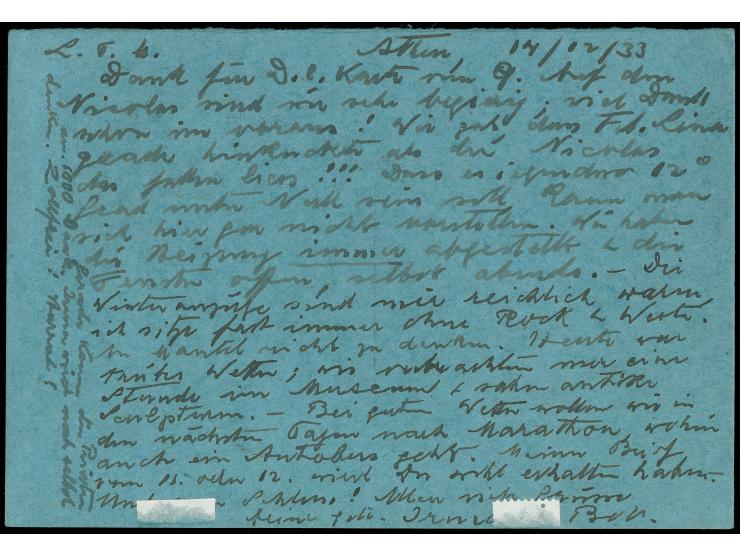 L. T. M. Athen 14/12/33
Dank für D. l. Karte vom 9. Auf den
Nicolas sind wir sehr begierig, viel Dank
schon im voraus! Wie gab dans Frl. Lina
gerade hinkuckte als der Nicolas
das fallen liess!!! Dass es irgendwo 12°
Grad unter Null sein soll kann man
sich hier gar nicht vorstellen. Wir haben
die Heizung immer abgestellt & die
Fenster offen, selbst abends. – Die
Winteranzüge sind mir reichlich warm
ich sitze fast immer ohne Rock & Weste.
An Mantel nicht zu denken. Heute war
trübes Wetter; wir verbrachten nur eine
Stunde im Museum & sahen antike
Sculpturen. – Bei gutem Wetter wollen wir in
den nächsten Tagen nach Marathon, wohin
auch ein Autobus geht. Meinen Brief
vom 11. oder 12. wirst Du wohl erhalten haben.
Und Schluss! Allen
Deine
Gerade kamen die
an. 1000 Dank, wenn wir auch selbst
denken. Zollfrei! Hurrah!